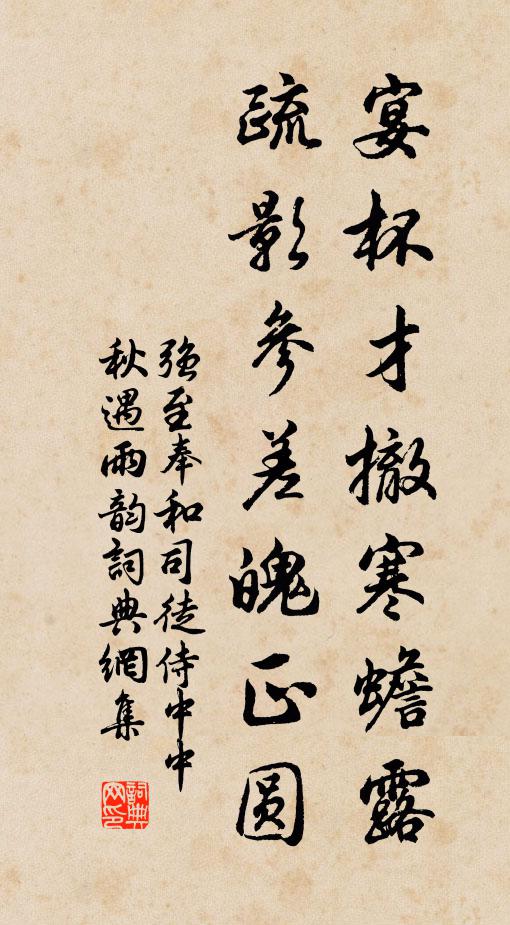 宴杯才撤寒蟾露
疏影參差魄正圆
強至奉和司徒侍中中
秋遇雨韵詞典網集
詞典網印